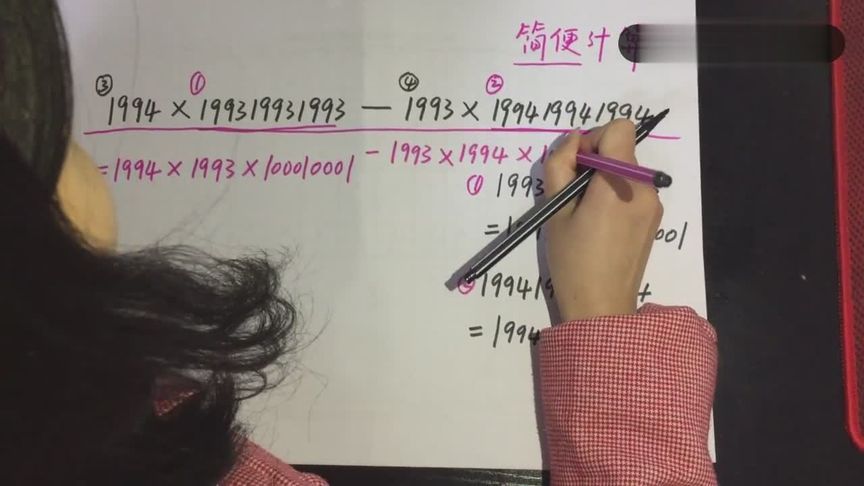 简便计
③ ① ④ ②
1994 × 199319931993 — 1993 × 199419941994
=1994 × 1993 × 100010001 - 1993 × 1994 × 1
① 1993
= 001
② 19941
= 1994